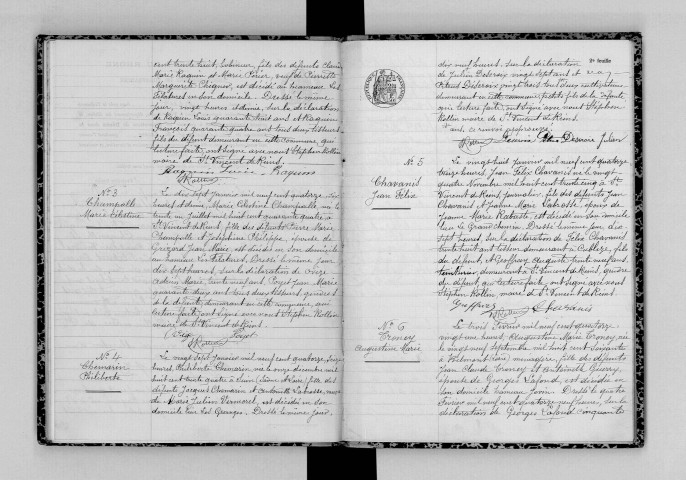 cent trente huit, tisseur, fils des defunts Claude
Marie Raquin et Marie Péras, veuf de Pierrette
Marguerite Chignier, est décédé au hameau Les
Filatures en son domicile. Dressé le même
jour, vingt heures et demie, sur la déclaration
de Raquin Louis quarante huit ans et Raquin
François quarante quatre ans tous deux tisseurs
fils du défunt demeurant en cette commune, qui
lecture faite, ont signé avec nous Stéphen Rollin
maire de St Vincent de Reins.
Raquin Louis Raquin
Rollin
No 3
Champalle
Marie Célestine
Le dix sept janvier mil neuf cent quatorze, dix
heures et demie, Marie Célestine Champalle, née le
trente un Juillet mil huit cent quarante quatre à
St Vincent de Reins, fille des défunts Pierre Marie
Champalle et Joséphine Philippe, épouse de
Grizard Jean Marie, est décédée en son domicile
au hameau Les Filatures. Dressé le même jour
dix sept heures, sur la déclaration de
Marie, trente neuf ans, Jean Marie
quarante cinq ans tous deux tisseurs, gendres
de la défunte, demeurant en cette commune, qui
lecture faite, ont signé avec nous Stéphen Rollin
maire de St Vincent de Reins.
Rollin
No 4
Chemarin
Philiberte
Le vingt sept janvier mil neuf cent quatorze, seize
heures, Philiberte Chemarin, née le onze décembre mil
huit cent trente quatre à (Saône et Loire), fille des
défunts Jacques Chemarin et Antoinette Labrosse, veuve
de Julien Vermorel, est décédée en son
domicile lieu Les Georges. Dressé le même jour
2e feuille
dix neuf heures, sur la déclaration
de Julien Desroir vingt sept ans et
Desroir vingt trois ans tous deux
demeurant en cette commune petits fils de la défunte,
qui lecture faite, ont signé avec nous Stéphen
Rollin maire de St Vincent de Reins.
Rollin Desroir Desroir Julien
No 5
Chavanis
Jean Félix
Le vingt huit janvier mil neuf cent quatorze
treize heures, Jean Félix Chavanis né le vingt
quatre Novembre mil huit cent trente cinq à St
Vincent de Reins, journalier, fils des défunts Jean
Chavanis et Jeanne Marie Labrosse, époux de
Jeanne Marie Raboste, est décédé en son domicile
lieu Le Grand Chemin. Dressé le même jour, dix
sept heures, sur la déclaration de Félix Chavanis
trente huit ans, tisseur demeurant à Cublize, fils
du défunt, et Geoffray Auguste trente neuf ans,
demeurant à St Vincent de Reins, gendre
du défunt, qui lecture faite, ont signé avec nous
Stéphen Rollin maire de St Vincent de Reins.
Geoffray Chavanis
Rollin
No 6
Troncy
Augustine Marie
Le trois Février mil neuf cent quatorze
vingt une heures, Augustine Marie Troncy, née
le vingt Septembre mil huit cent soixante
à Belmont (Loire) ménagère, fille des défunts
Jean Claude Troncy et Antoinette
épouse de Georges Lafond, est décédée en
son domicile hameau Dressé le quatre
Février mil neuf cent quatorze heures, sur la
déclaration de Georges Lafond cinquante